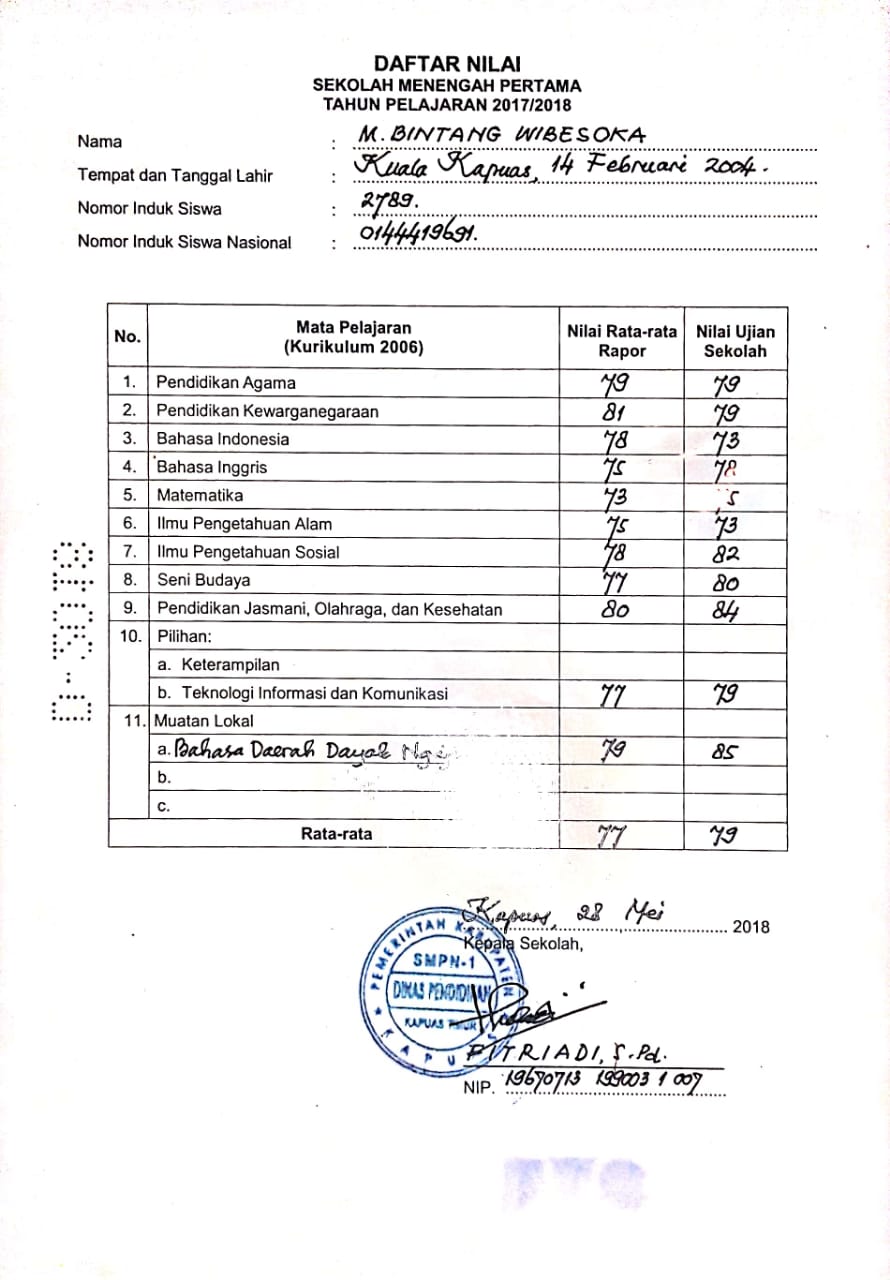 DAFTAR NILAI
SEKOLAH MENENGAH PERTAMA
TAHUN PELAJARAN 2017/2018
Nama : M. BINTANG WIBESOKA
Tempat dan Tanggal Lahir : Kuala Kapuas, 14 Februari 2004.
Nomor Induk Siswa : 2789.
Nomor Induk Siswa Nasional : 0144419691.
No. Mata Pelajaran (Kurikulum 2006) Nilai Rata-rata Rapor Nilai Ujian Sekolah
1. Pendidikan Agama 79 79
2. Pendidikan Kewarganegaraan 81 79
3. Bahasa Indonesia 78 73
4. Bahasa Inggris 75 78
5. Matematika 73
6. Ilmu Pengetahuan Alam 75 73
7. Ilmu Pengetahuan Sosial 78 82
8. Seni Budaya 77 80
9. Pendidikan Jasmani, Olahraga, dan Kesehatan 80 84
10. Pilihan:
a. Keterampilan
b. Teknologi Informasi dan Komunikasi 77 79
11. Muatan Lokal
a. Bahasa Daerah Dayak 79 85
b.
c.
Rata-rata 77 79
Kapuas, 28 Mei 2018
Kepala Sekolah,
PEMERINTAH KABUPATEN
SMPN-1
DINAS PENDIDIKAN
KAPUAS TIMUR
KAPUAS
FITRIADI, S.Pd.
NIP. 19670713 199003 1 007